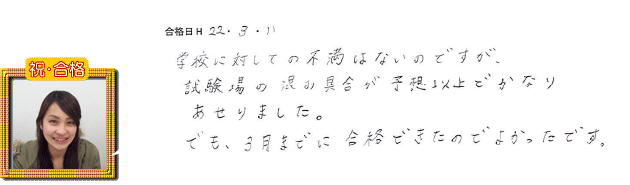 合格日H 22・3・11
祝・合格
学校に対しての不満はないのですが、
試験場の混み具合が予想以上でかなり
あせりました。
でも、3月までに合格できたのでよかったです。